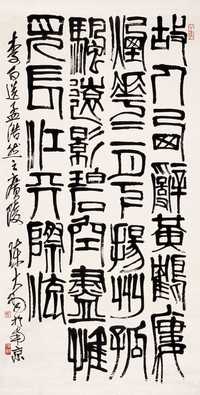 故人西辭黃鶴樓
煙華三月下揚州孤
帆遠影碧空盡惟
見長江天際流
李白送孟浩然之廣陵 陳大羽於南京